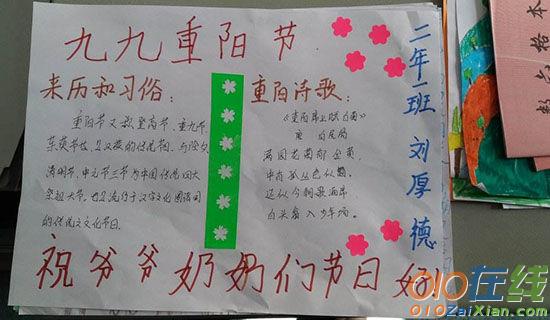 九九重阳节
来历和习俗：
重阳节又叫登高节、重九节、
茱萸节，也是汉族的传统节日，与除夕
清明节、中元节三节为中国传统四大
祭祖大节，也是流行于汉字文化圈诸国
的传统文化节日。
重阳诗歌：
满园花菊郁金黄，
中有孤丛色似霜。
还似今朝歌酒席
白头翁入少年场。
二年一班 刘厚德
祝爷爷奶奶们节日好
数学格本
010在线
010ZaiXian.com